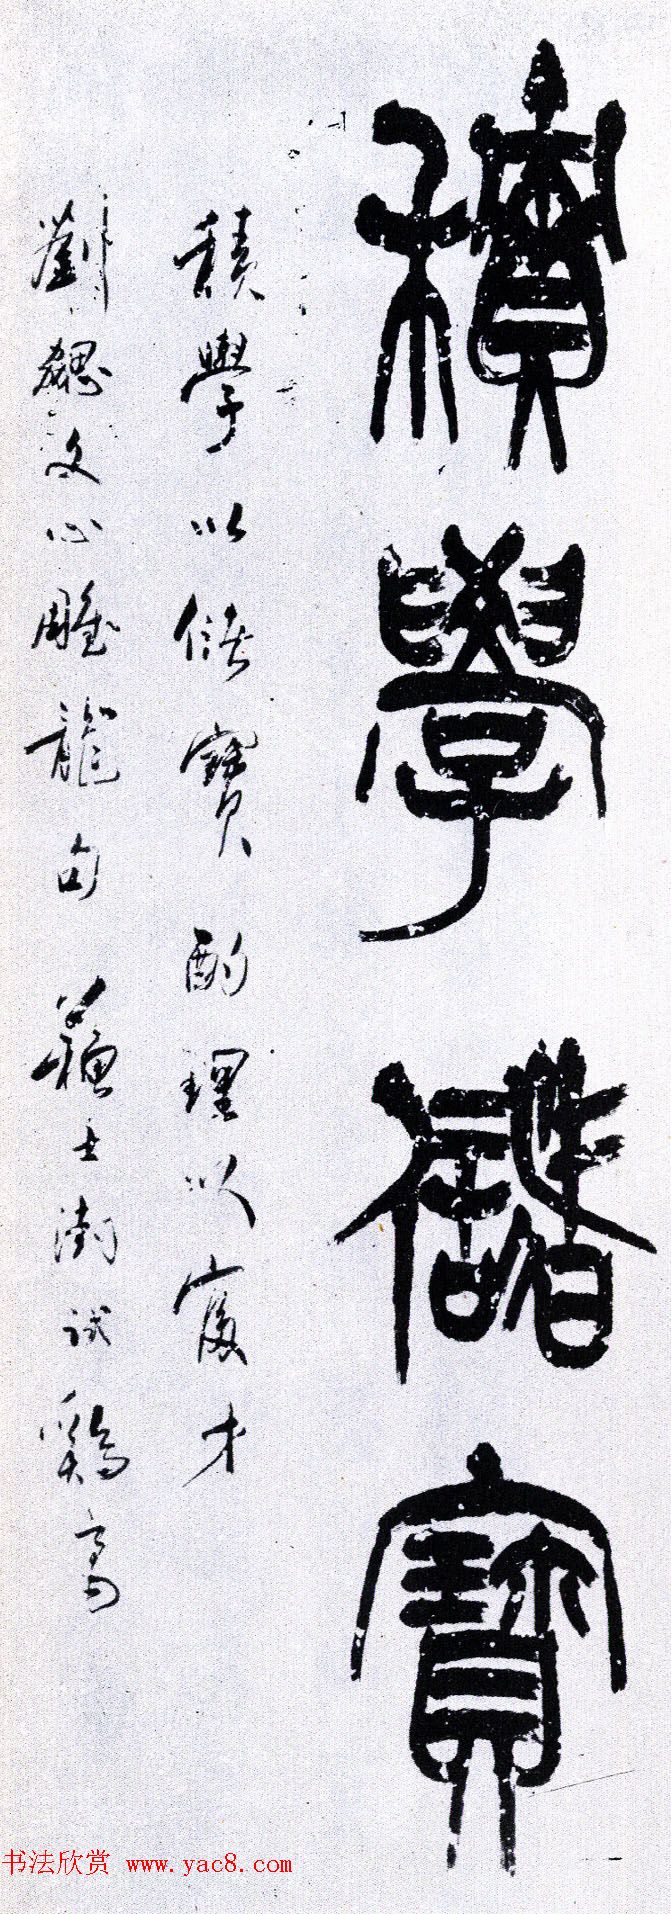 積學儲寶
積學以儲寶酌理以富才
劉勰文心雕龍句 蘇士澍試鷄毫
书法欣赏 www.yac8.com